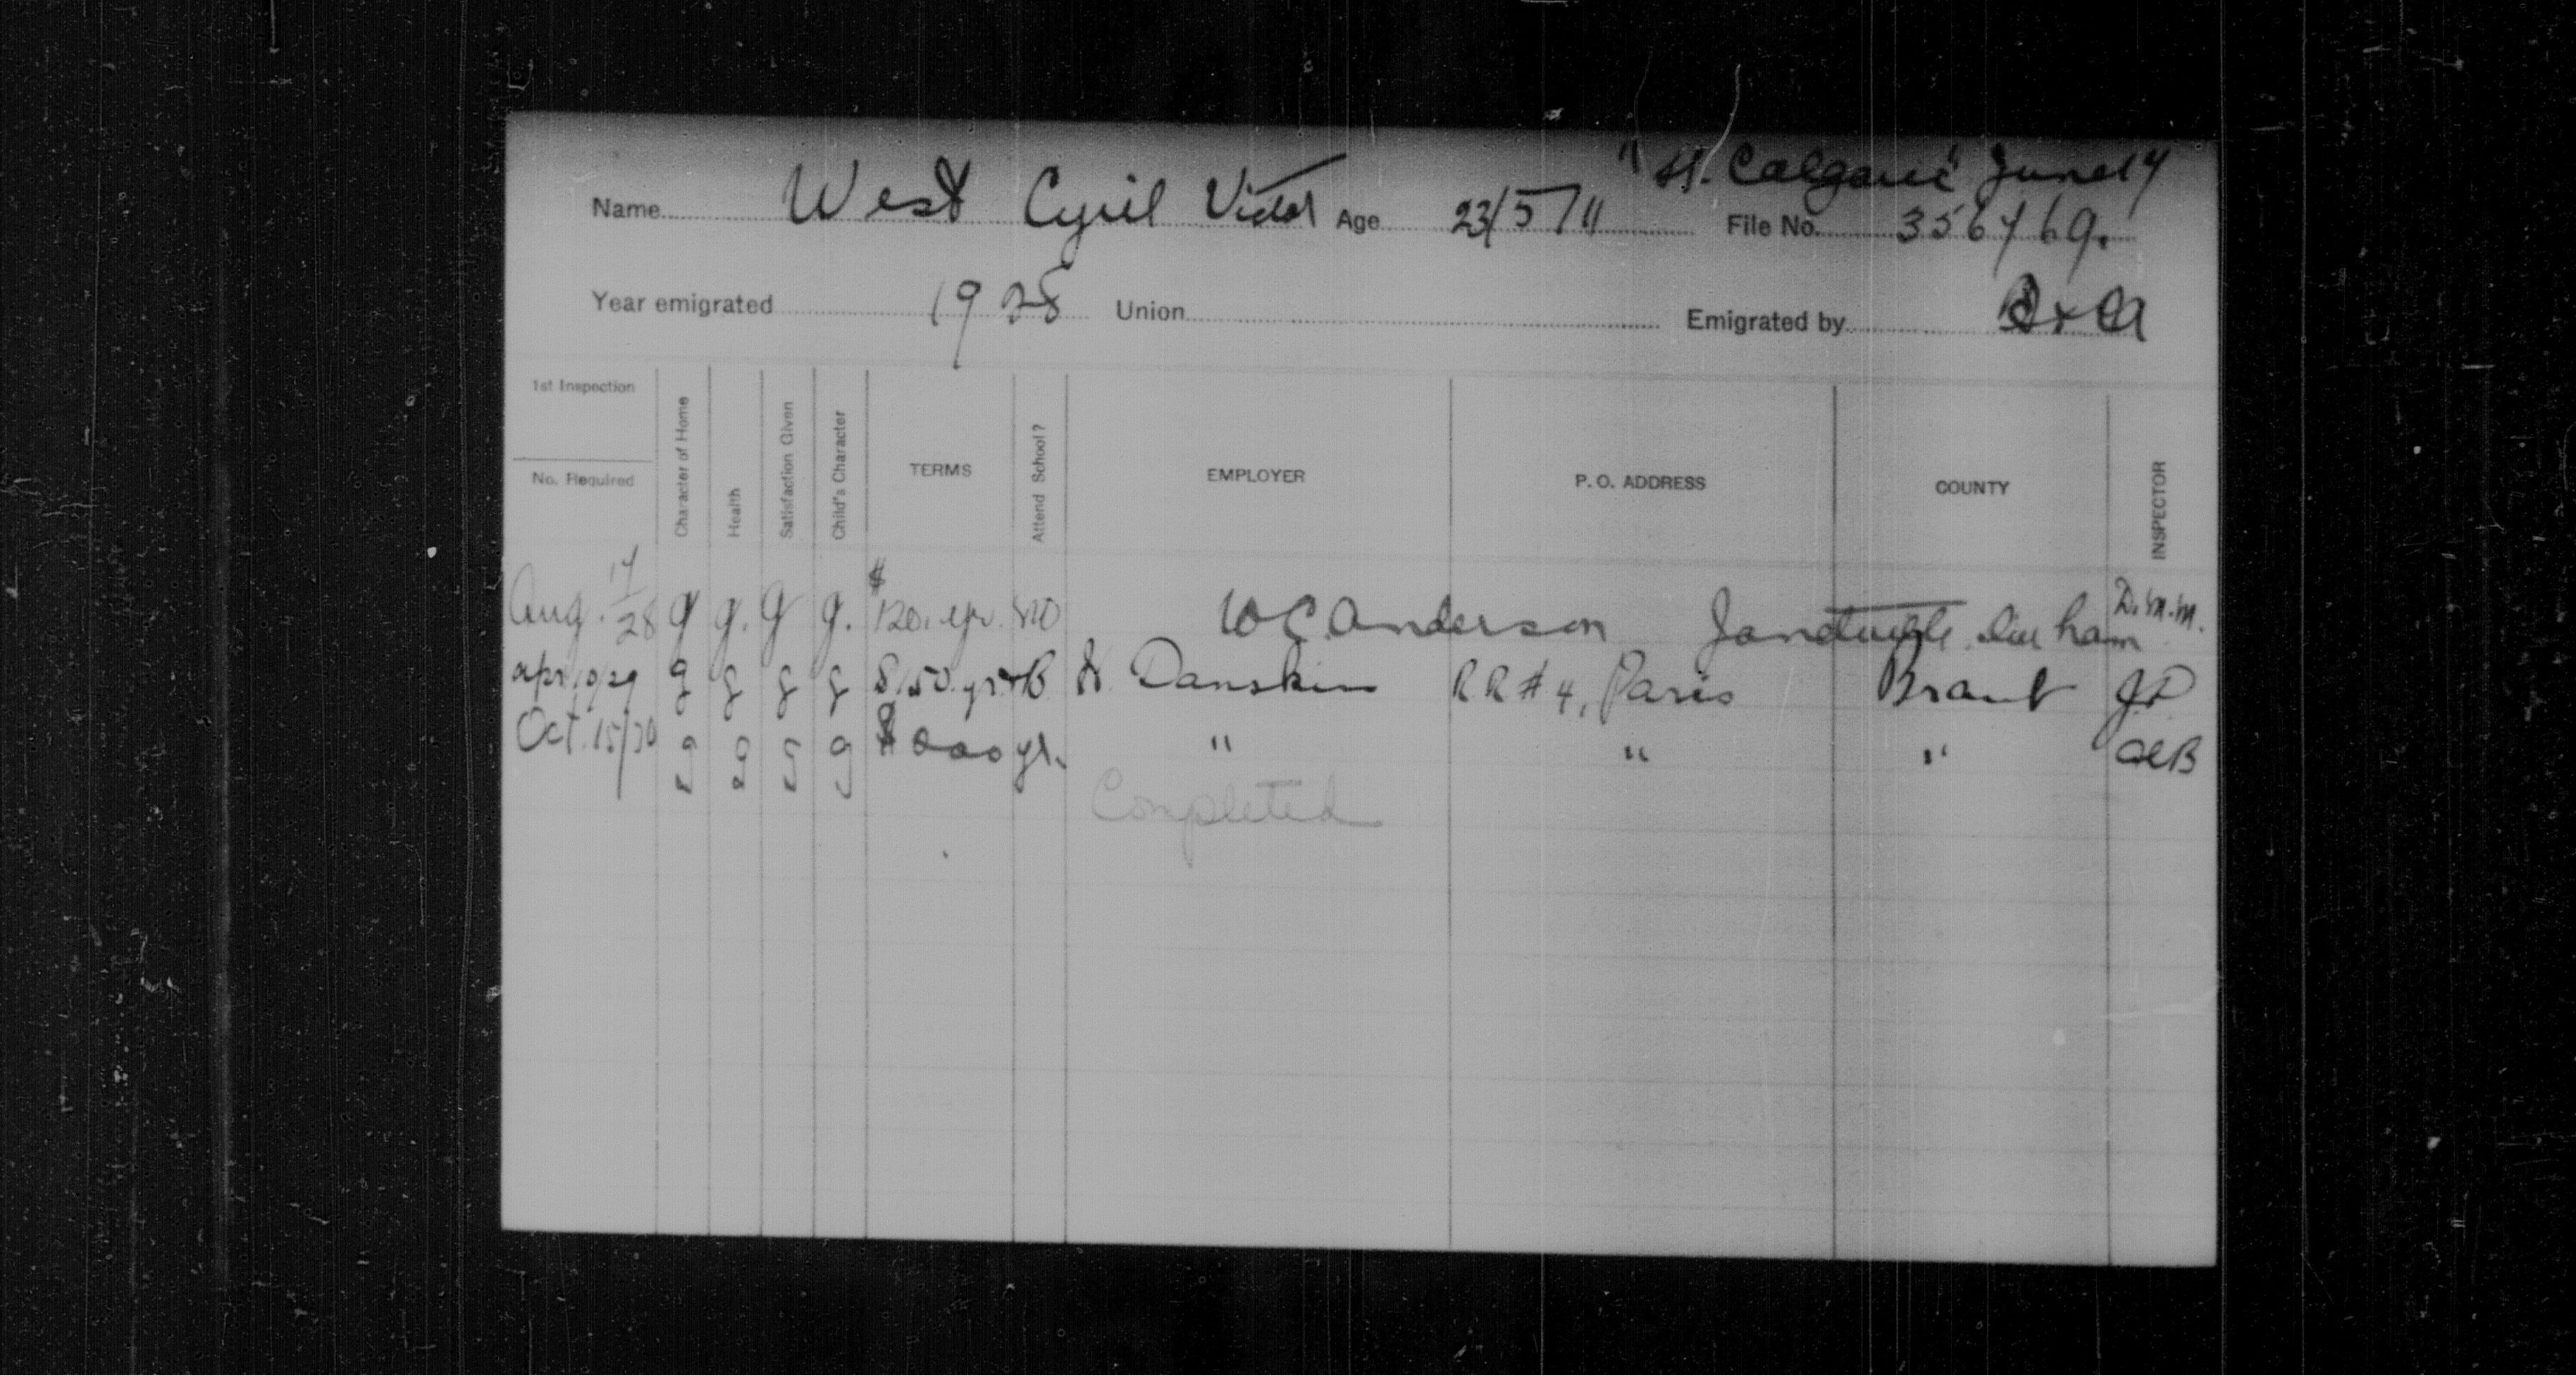 "H. Calgaric" June 14
Name West Cyril Victor Age 23/5/11 File No. 356769.
Year emigrated 1928 Union Emigrated by
1st Inspection
No. Required
Character of Home
Health
Satisfaction Given
Child's Character
TERMS
Attend School?
EMPLOYER
P. O. ADDRESS
COUNTY
INSPECTOR
Aug. 17/28 g g. g g. $120. yr. no W C Anderson Janetville Durham D. M. M.
Apr. 10/29 g g g g $150. yr + B Danskin R R # 4, Paris Brant J.P.
Oct. 15/30 g g g g yr. " " "
Completed